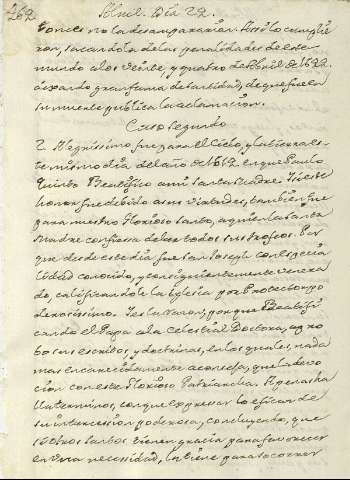 262 Abril. Dia 22.
tonces no la desampararian. Assi lo cumplie-
ron, sacandola de las penalidades de este
mundo a los veinte, y quatro de Abril de 1632.
dexando gran fama de santidad, de que fue la
su muerte publica la aclamacion.
Caso Segundo
2. Alegrissimo fue para el Cielo, y la tierra es-
te mismo dia del año de 1612. en que Paulo
Quinto Beatifico a mi Santa Madre. Y si este
honor fue debido a sus virtudes, tambien fue
para nuestro Glorioso Santo, a quien la Santa
Madre confiessa deber todos sus trofeos. Por
que desde este dia fue San Joseph con especia-
lidad conocido, y consiguientemente venera-
do, calificandole la Iglesia por Protector po-
derosissimo. Es la razon, porque Beatifi-
cando el Papa a la Celestial Doctora, apro-
bo sus escritos, y doctrinas, en los quales, nada
mas encarecidamente aconseja, que la devo-
cion con este Glorioso Patriarcha. Apenas ha-
lla terminos, con que expressar lo eficaz de
su intercession poderosa, concluyendo, que
si otros Santos tienen gracia para favorecer
en una necessidad, la tiene para socorrer